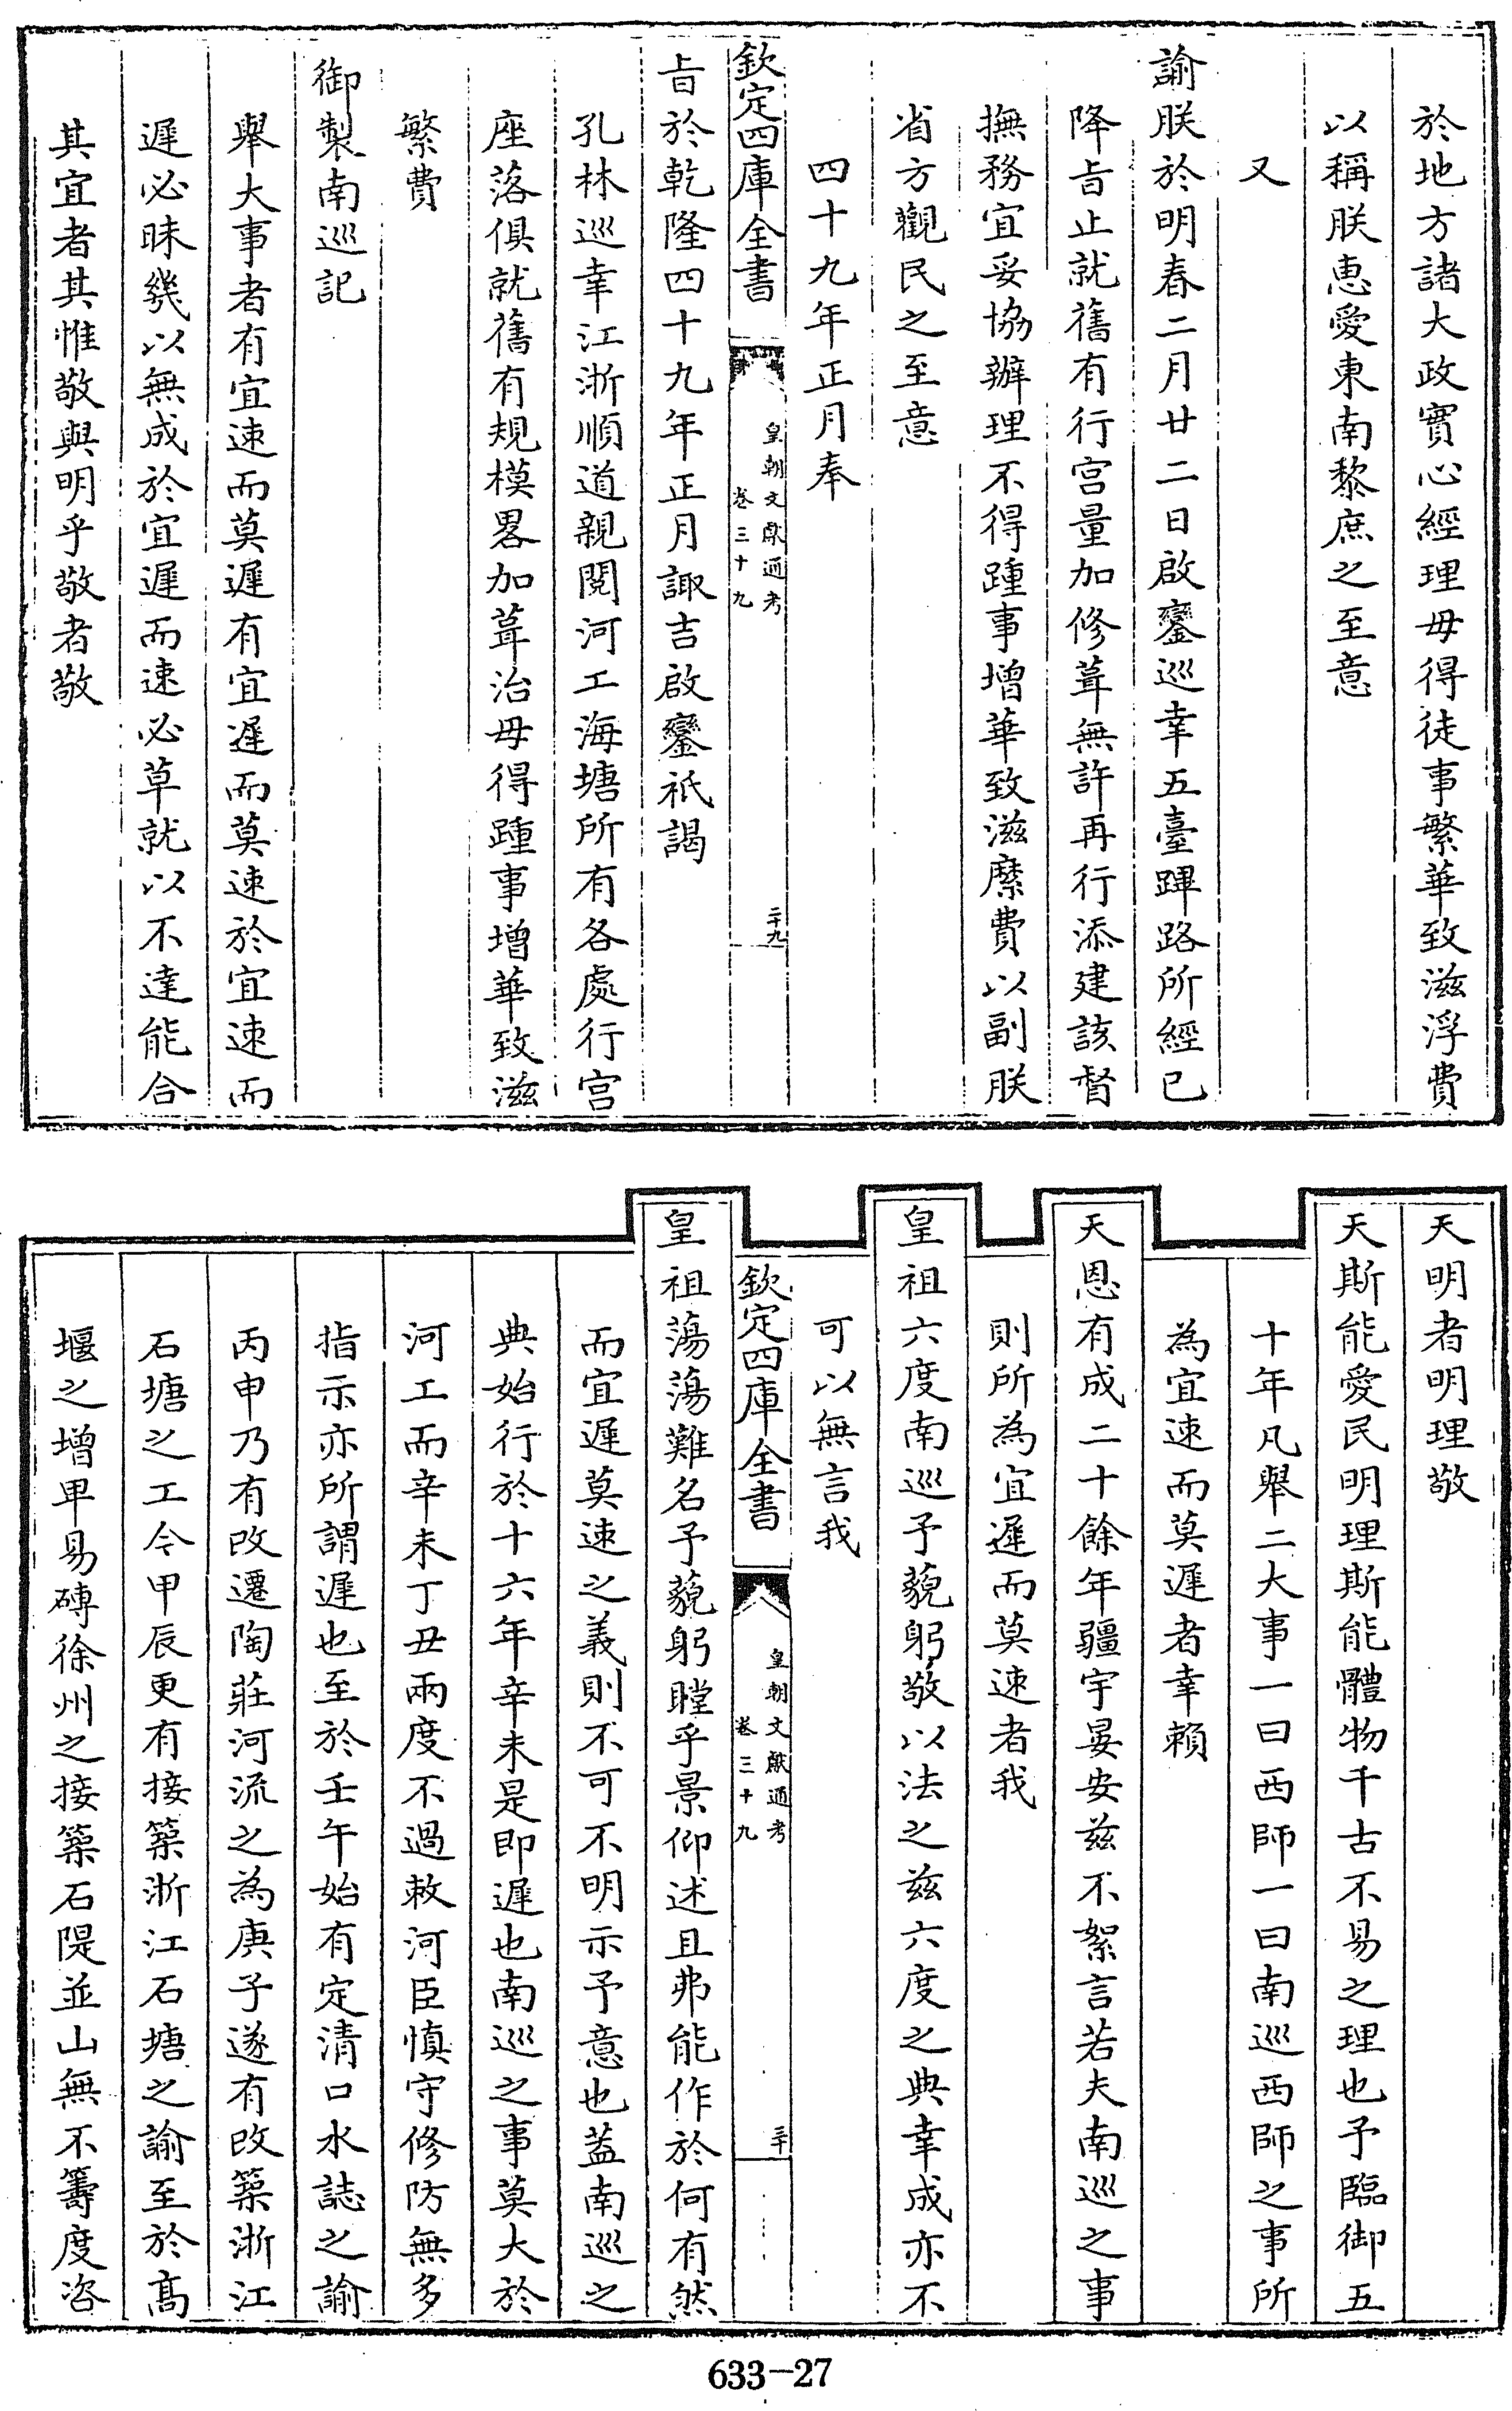 於地方諸大政實心經理毋得徒事繁華致滋浮費
以稱朕惠愛東南黎庶之至意
又
諭朕於明春二月廿二日啟鑾巡幸五臺蹕路所經已
降旨止就舊有行宫量加修葺無許再行添建該督
撫務宜妥協辦理不得踵事增華致滋縻費以副朕
省方觀民之至意
四十九年正月奉
欽定四庫全書
皇朝文獻通考
卷三十九
二十九
旨於乾隆四十九年正月諏吉啟鑾祇謁
孔林巡幸江浙順道親閱河工海塘所有各處行宫
座落俱就舊有規模畧加葺治毋得踵事增華致滋
繁費
御製南巡記
舉大事者有宜速而莫遲有宜遲而莫速於宜速而
遲必昧幾以無成於宜遲而速必草就以不達能合
其宜者其惟敬與明乎敬者敬
天明者明理敬
天斯能愛民明理斯能體物千古不易之理也予臨御五
十年凡舉二大事一曰西師一曰南巡西師之事所
為宜速而莫遲者幸賴
天恩有成二十餘年疆宇晏安兹不絮言若夫南巡之事
則所為宜遲而莫速者我
皇祖六度南巡予藐躬敬以法之兹六度之典幸成亦不
可以無言我
欽定四庫全書
皇朝文獻通考
卷三十九
三十
皇祖蕩蕩難名予藐躬瞠乎景仰述且弗能作於何有然
而宜遲莫速之義則不可不明示予意也葢南巡之
典始行於十六年辛未是即遲也南巡之事莫大於
河工而辛未丁丑兩度不過敕河臣慎守修防無多
指示亦所謂遲也至於壬午始有定清口水誌之諭
丙申乃有改遷陶莊河流之為庚子遂有改築浙江
石塘之工今甲辰更有接築浙江石塘之諭至於高
堰之增卑易磚徐州之接築石隄並山無不籌度咨
633-27